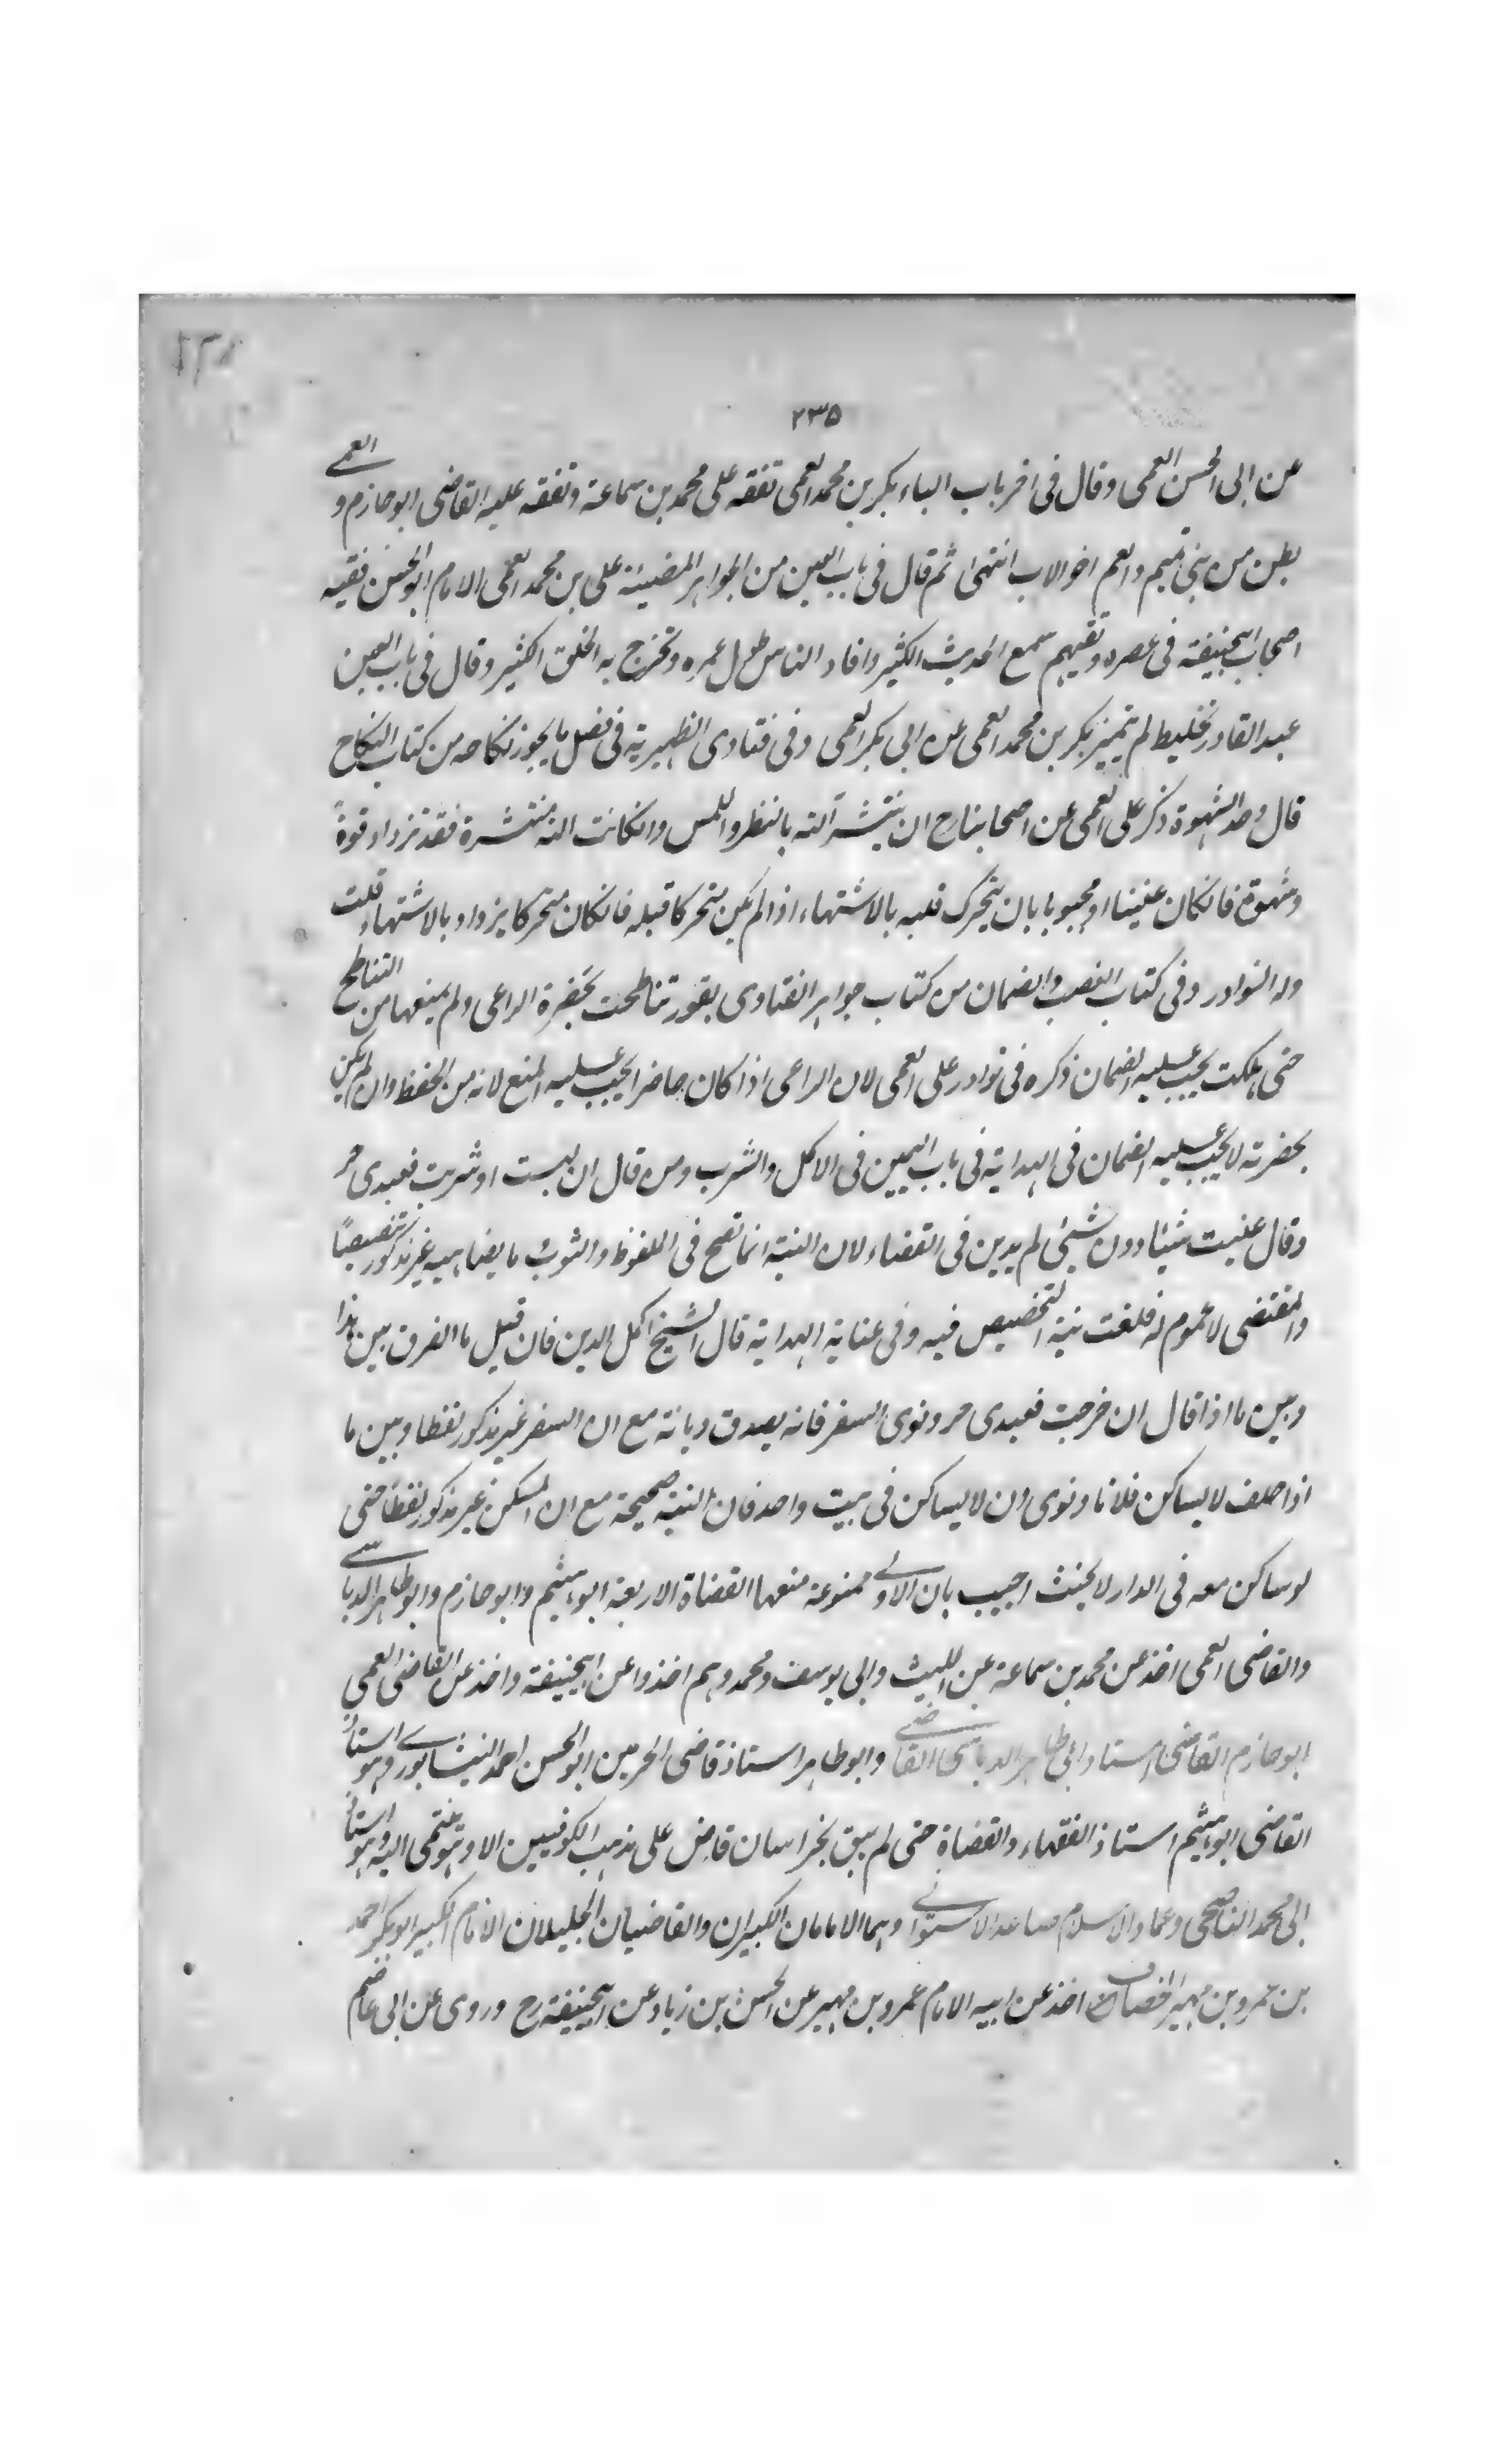 ٢٣٥
عن ابى الحسن العمى وقال فى اخر باب الباء بكر بن محمد العمى تفقه على محمد بن سماعة وتفقه عليه القاضى ابو حازم و العمى
بطن من بنى تميم والعم اخو الاب انتهى ثم قال فى باب العين من الجواهر المضيئة على بن محمد العمى الامام ابو الحسن فقيه
اصحاب ابيحنيفة فى عصره وتقيهم سمع الحديث الكثير وافاد الناس طول عمره وتخرج به الخلق الكثير وقال فى باب العين
عبد القادر تخليط لم يتميز بكر بن محمد العمى عن ابى بكر العمى وفى فتاوى الظهيرية فى فصل ما يجوز نكاحه من كتاب النكاح
قال وحد الشهوة ذكر على العمى عن اصحابنا رح ان ينتشر آلته بالنظر واللمس وانكانت الته منتشرة فقد تزداد قوةً
وشهوة فانكان عنينا او مجبوبا بان يتحرك قلبه بالاشتهاء اذا لم يكن متحركا قبله فانكان متحركا يزداد بالاشتهاء قلت
وله النوادر وفى كتاب الغصب والضمان من كتاب جواهر الفتاوى بقور تناطحت بحضرة الراعى ولم يمنعها من التناطح
حتى هلكت يجب عليه الضمان ذكره فى نوادر على العمى لان الراعى اذا كان حاضرا يجب عليه المنع لانه من الحفظ وان لم يكن
بحضرته لا يجب عليه الضمان فى الهداية فى باب اليمين فى الاكل والشرب ومن قال ان لبست او شربت فعبدى حر
وقال عنيت شيئا دون شيئ لم يدين فى القضاء لان النية انما تصح فى اللفوظ والثوب ما يضاهيه غير مذكور تنصيصًا
والمقتضى لا عموم له فلغت نية التخصيص فيه وفى عناية الهداية قال الشيخ اكمل الدين فان قيل ما الفرق بين هذا
وبين ما اذا قال ان خرجت فعبدى حر ونوى السفر فانه يصدق ديانة مع ان السفر غير مذكور لفظا وبين ما
اذا حلف لا يساكن فلانا ونوى ان لا يساكن فى بيت واحد فان النية صحيحة مع ان المسكن غير مذكور لفظا حتى
لو ساكن معه فى الدار لا يحنث اجيب بان الاولى ممنوعة منعها القضاة الاربعة ابو هيثم وابو حازم وابو طاهر الدباسى
والقاضى العمى اخذ عن محمد بن سماعة عن الليث وابى يوسف ومحمد وهم اخذوا عن ابيحنيفة واخذ عن القاضى العمى
ابو حازم القاضى استاد ابى طاهر الدباسى القاضى وابو طاهر استاذ قاضى الحرمين ابو الحسن احمد النيشابورى وهو استاذ
القاضى ابو هيثم استاذ الفقهاء والقضاة حتى لم يبق بخراسان قاض على مذهب الكوفيين الا وهو ينتمى اليه وهو استاذ
ابى محمد الناصحى وعماد الاسلام صاعد الاستوائى وهما الامامان الكبيران والقاضيان الجليلان الامام الكبير ابو بكر احمد
بن عمرو بن مهير الخصاف اخذ عن ابيه الامام عمرو بن مهير عن الحسن بن زياد عن ابيحنيفة رح وروى عن ابى عاصم